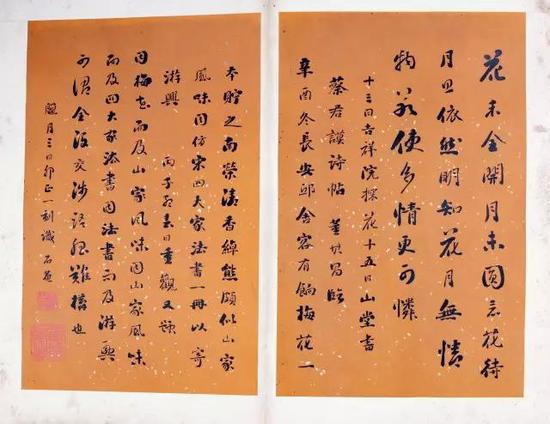 花未全開月未圓尋花待
月思依然明知花月無情
物若使多情更可憐
十三日吉祥院探花十五日山堂書
蔡君謨詩帖 董其昌臨
辛酉冬長安邸舍客有餉梅花一
本貯之南榮清香綽態頗似山家
風味因仿宋四大家法書一冊以寄
游興 丙子春日重觀又題
因梅花而及山家風味因山家風味
而及四大家法書因法書而及游興
可謂全沒交涉語難構也
臘月三日卯正一刻識 石庵